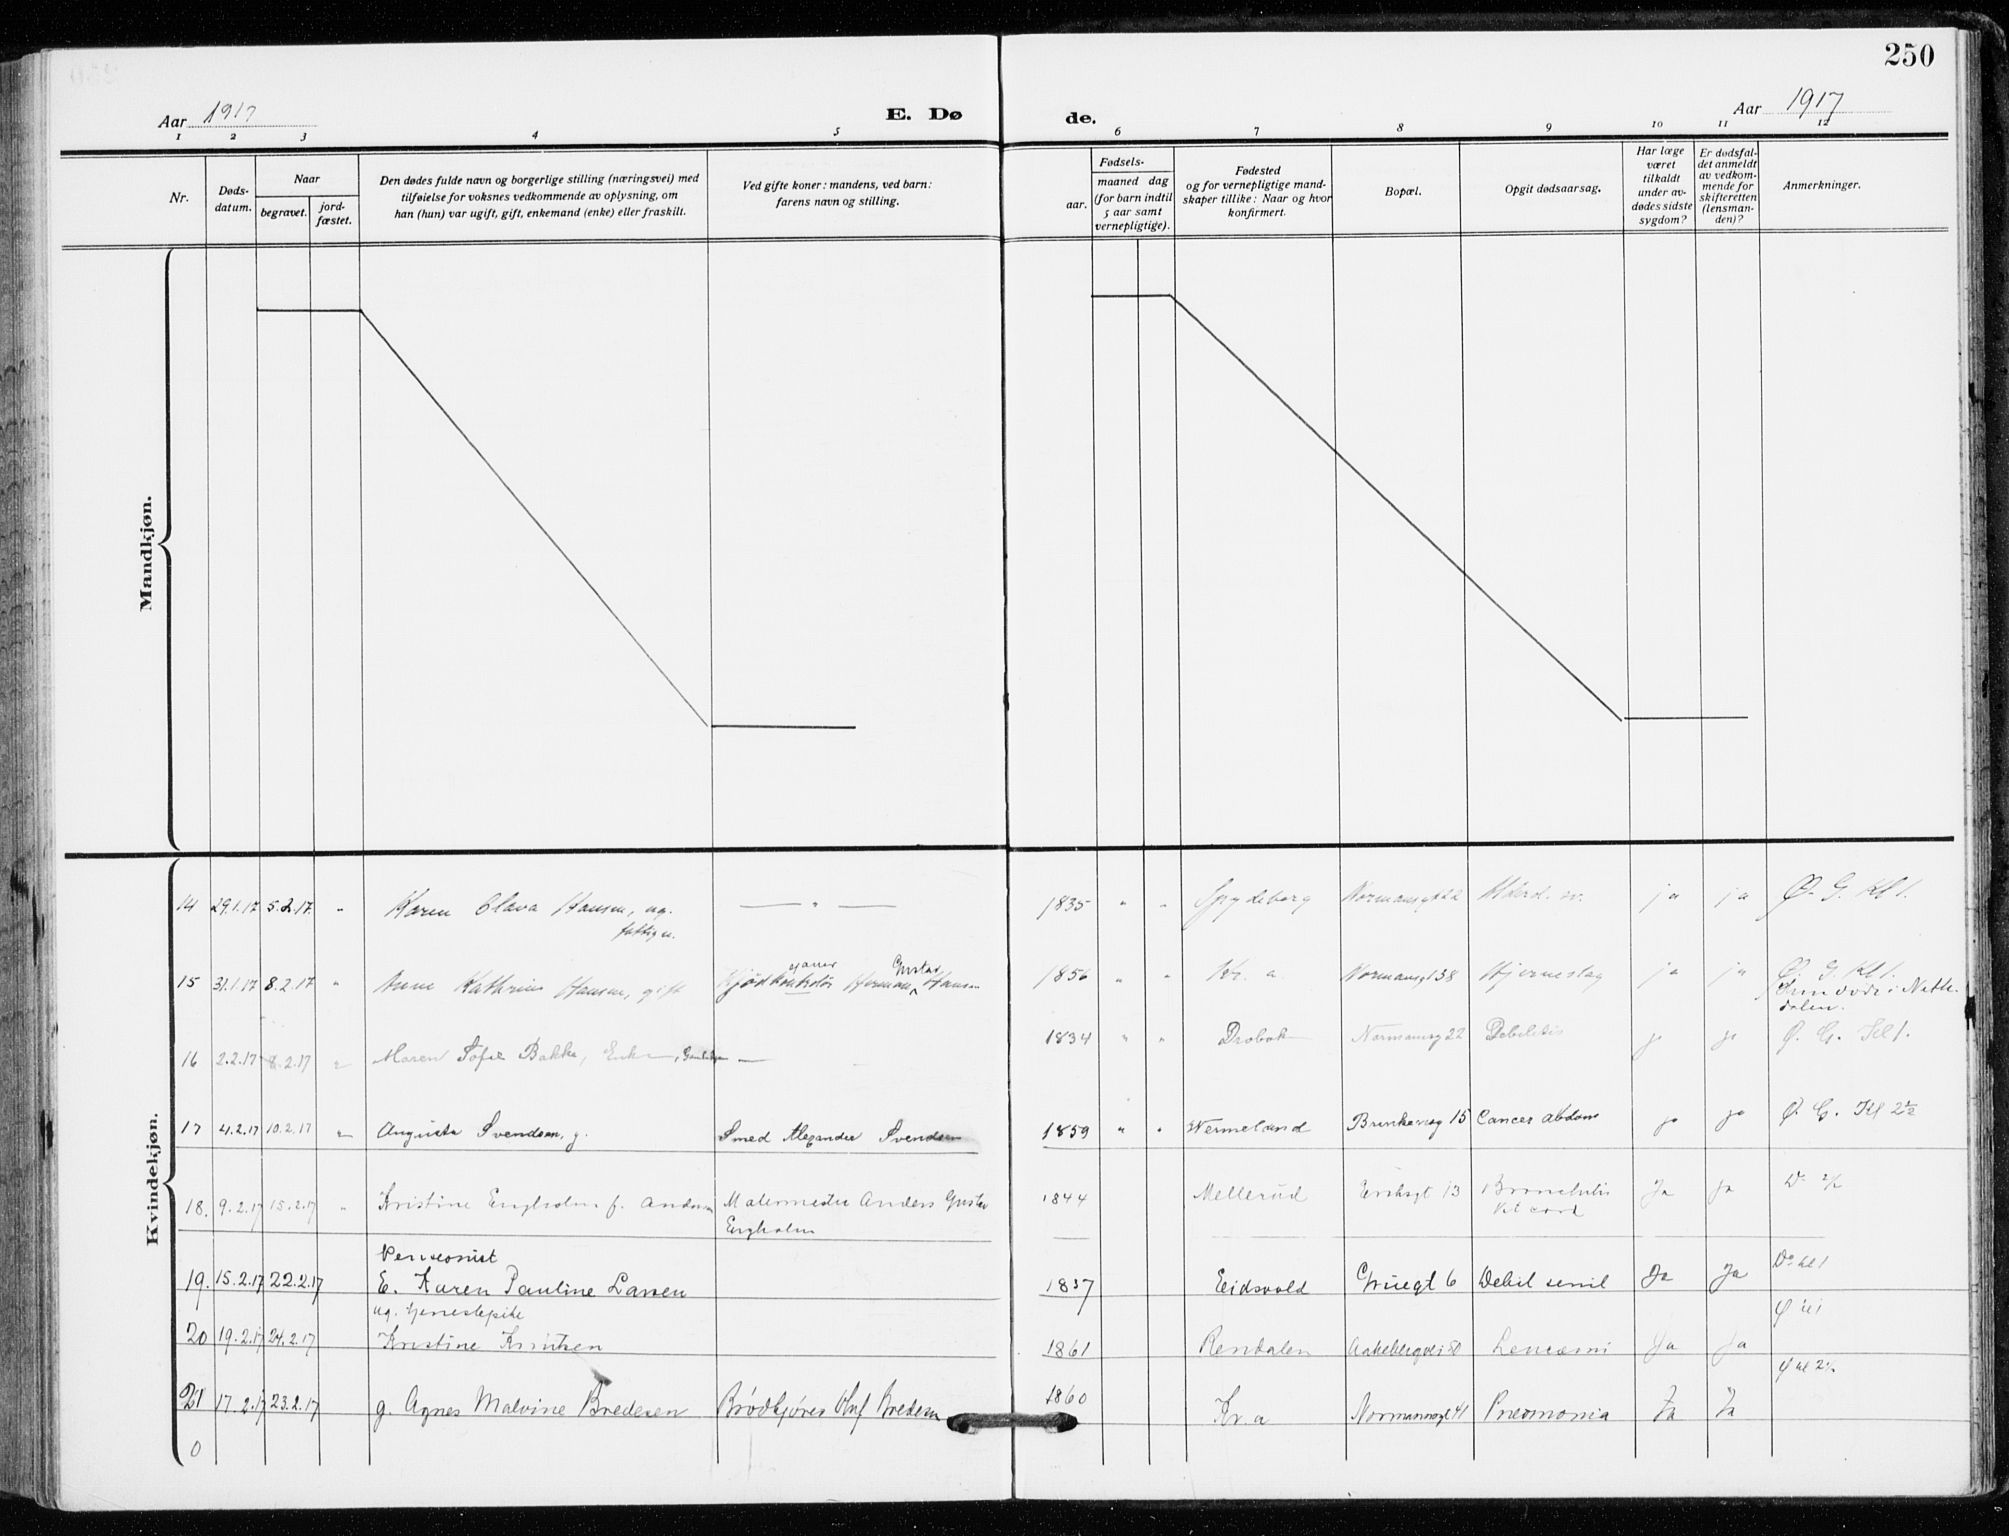 250
Aar 1917
E. Dø
de.
Aar 1917
1 2 3 4 5 6 7 8 9 10 11 12
Nr.
Døds-
datum.
Naar
begravet.
jord-
fæstet.
Den dødes fulde navn og borgerlige stilling (næringsvei) med
tilføielse for voksnes vedkommende av oplysning, om
han (hun) var ugift, gift, enkemand (enke) eller fraskilt.
Ved gifte koner: mandens, ved barn:
farens navn og stilling.
Fødsels-
aar.
maaned dag
(for barn indtil
5 aar samt
vernepligtige).
Fødested
og for vernepligtige mand-
skaper tillike: Naar og hvor
konfirmert.
Bopæl.
Opgit dødsaarsag.
Har læge
været
tilkaldt
under av-
dødes sidste
sygdom?
Er dødsfal-
det anmeldt
av vedkom-
mende for
skifteretten
(lensman-
den)?
Anmerkninger.
Mandkjøn.
Kvindekjøn.
14 29.1.17 5.2.17. " Karen Olava Hansen, ug. — " — 1835 " " Spydeberg Normansgt 22 ja ja Ø. G. Kl 1.
fattigu.
15 31.1.17 8.2.17 " Anne Kathrine Hansen, gift Kjødkontrolør Herman Hansen 1856 " " Kr. a. Normansgt 38 Hjerneslag ja ja Ø. G. Kl 1.
Gustav
dalen.
16 2.2.17 8.2.17 " Maren Sofie Bakke, Enke, — 1834 " " Drøbak Normansg 22 Debilitis ja ja Ø. G. Kl 1.
17 4.2.17 10.2.17 " Augusta Svendsen, g. Smed Alexander Svendsen 1859 " " Wermeland 15 Cancer abdom ja ja Ø. G. Kl 2
18. 9.2.17 15.2.17 " Kristine Engholm f. Andersen Malermester Anders Gustav 1844 Mellerud Eriksgt 13 Bronchitis Ja ja
Engholm
Vit cord
Pensionist
19. 15.2.17 22.2.17 E. Karen Pauline Larsen 1837 Eidsvold Gruegt 6 Debil senil Ja Ja Do kl 1
ug. tjenestepike
20 19.2.17 24.2.17 Kristine Knutsen 1861 Rendalen Leucæmi Ja Ja Ø kl 1
21 17.2.17 23.2.17 g. Agnes Malvine Bredesen Brødkjører Olaf Bredesen 1860 Kr. a Normannsgt 41 Pneomonia Ja Ja
0